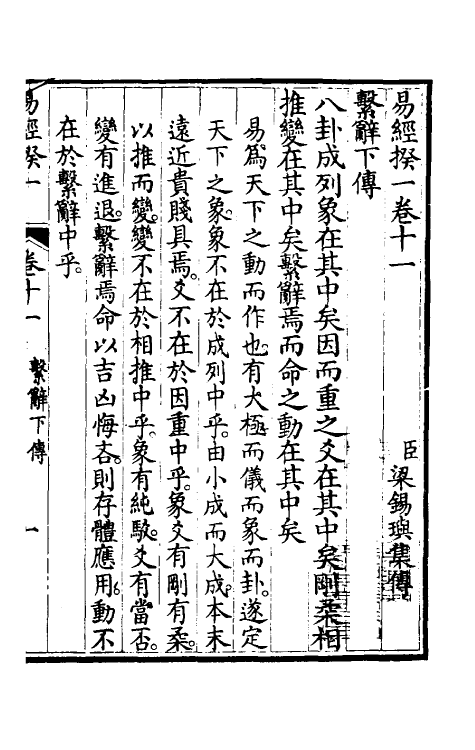 易經揆一卷十一
臣梁錫璵集傳
繫辭下傳
八卦成列象在其中矣因而重之爻在其中矣剛柔相
推變在其中矣繫辭焉而命之動在其中矣
易爲天下之動而作也。有大極而儀而象而卦。遂定
天下之象。象不在於成列中乎。由小成而大成。本末
遠近貴賤具焉。爻不在於因重中乎。象爻有剛有柔。
以推而變。變不在於相推中乎。象有純駁。爻有當否。
變有進退。繫辭焉命以吉凶悔吝。則存體應用。動不
在於繫辭中乎。
易經揆一
卷十一
繫辭下傳
一